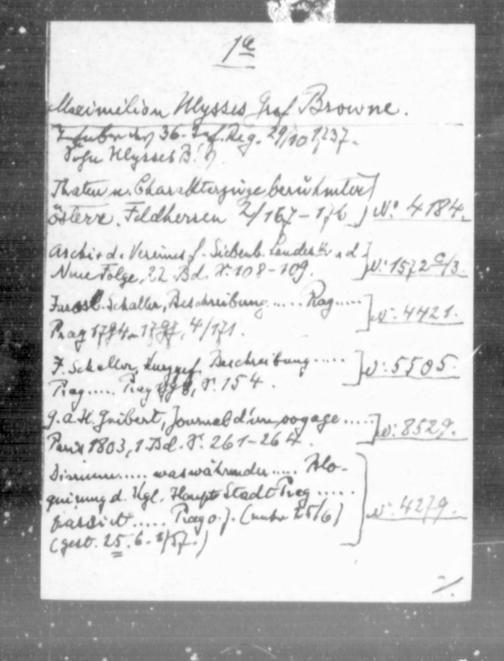 1a
Maximilian Ulysses Graf Browne.
Inhaber des 36. Inf. Reg. 29/10 1737.
Sohn Ulysses B.'s
Thaten u. Charakterzüge berühmter
österr. Feldherren 2/167-176 } Nº 4184.
Archiv d. Vereines f. Siebenb. Landesk.
Neue Folge, 22. Bd. S. 108-109. } Nº 1572 c/3.
Schaller, Beschreibung ..... Prag .....
Prag 1794-1797, 4/171. } Nº 4421.
J. Schaller, kurzgef. Beschreibung .....
Prag ..... Prag S. 154. } Nº 5505.
G. a. H. Guibert, Journal d'un voyage .....
Paris 1803, 1. Bd. S. 261-264. } Nº 8529.
Diarium ..... was während der ..... Blo-
quirung d. Kgl. Haupt Stadt Prag .....
passirt ..... Prag o. J. (unter 25/6)
(gest. 25. 6. 1757.) } Nº 4279.